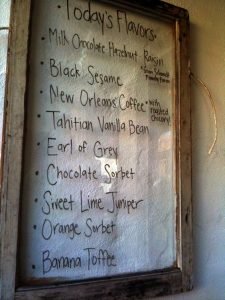 Today's Flavors
Milk Chocolate Hazelnut Raisin
Black Sesame
New Orleans Coffee with roasted chicory!
Tahitian Vanilla Bean
Earl of Grey
Chocolate Sorbet
Sweet Lime Juniper
Orange Sorbet
Banana Toffee